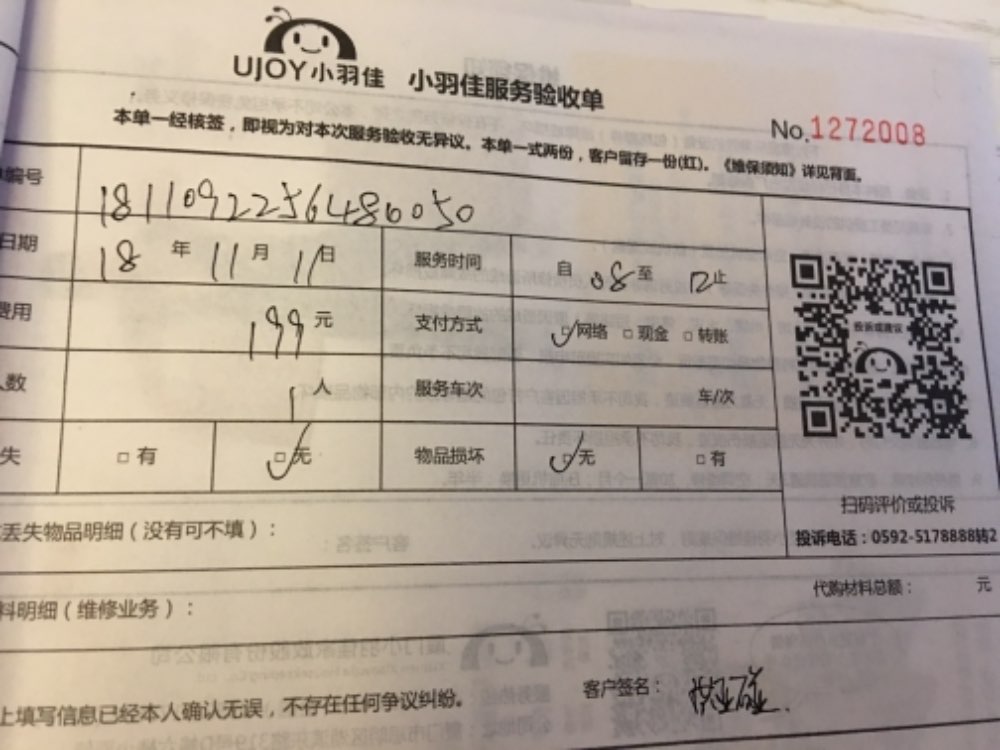 UJOY小羽佳 小羽佳服务验收单
本单一经核签，即视为对本次服务验收无异议。本单一式两份，客户留存一份(红)。《维保须知》详见背面。
No.1272008
编号 1811092256486050
日期 18 年 11 月 11 日 服务时间 自 08 至 12 止
费用 199 元 支付方式 ☑网络 □现金 □转账
人数 1 人 服务车次 车/次
失 □有 ☑无 物品损坏 ☑无 □有
投诉或建议
扫码评价或投诉
投诉电话：0592-5178888转2
丢失物品明细（没有可不填）：
代购材料总额： 元
料明细（维修业务）：
上填写信息已经本人确认无误，不存在任何争议纠纷。
客户签名：